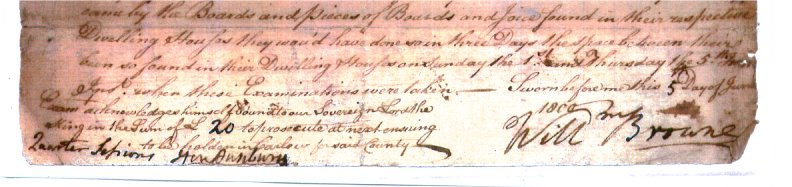 came by the Boards and pieces of Boards and Joice found in their respective
Dwelling Houses they wou'd have done so in three Days the space between their
been so found in their Dwelling Houses on Sunday the 1st and Thursday the 5th
Inst. when these Examinations were taken — Sworn before me this 5 Day of
Exam acknowledges himself Bound to our Sovereign Lord the 180
King in the Sum of £ 20 to prosecute at next ensuing Will Browne
Quarter Sessions to be holden in Carlow for said County
Hen Bunbury